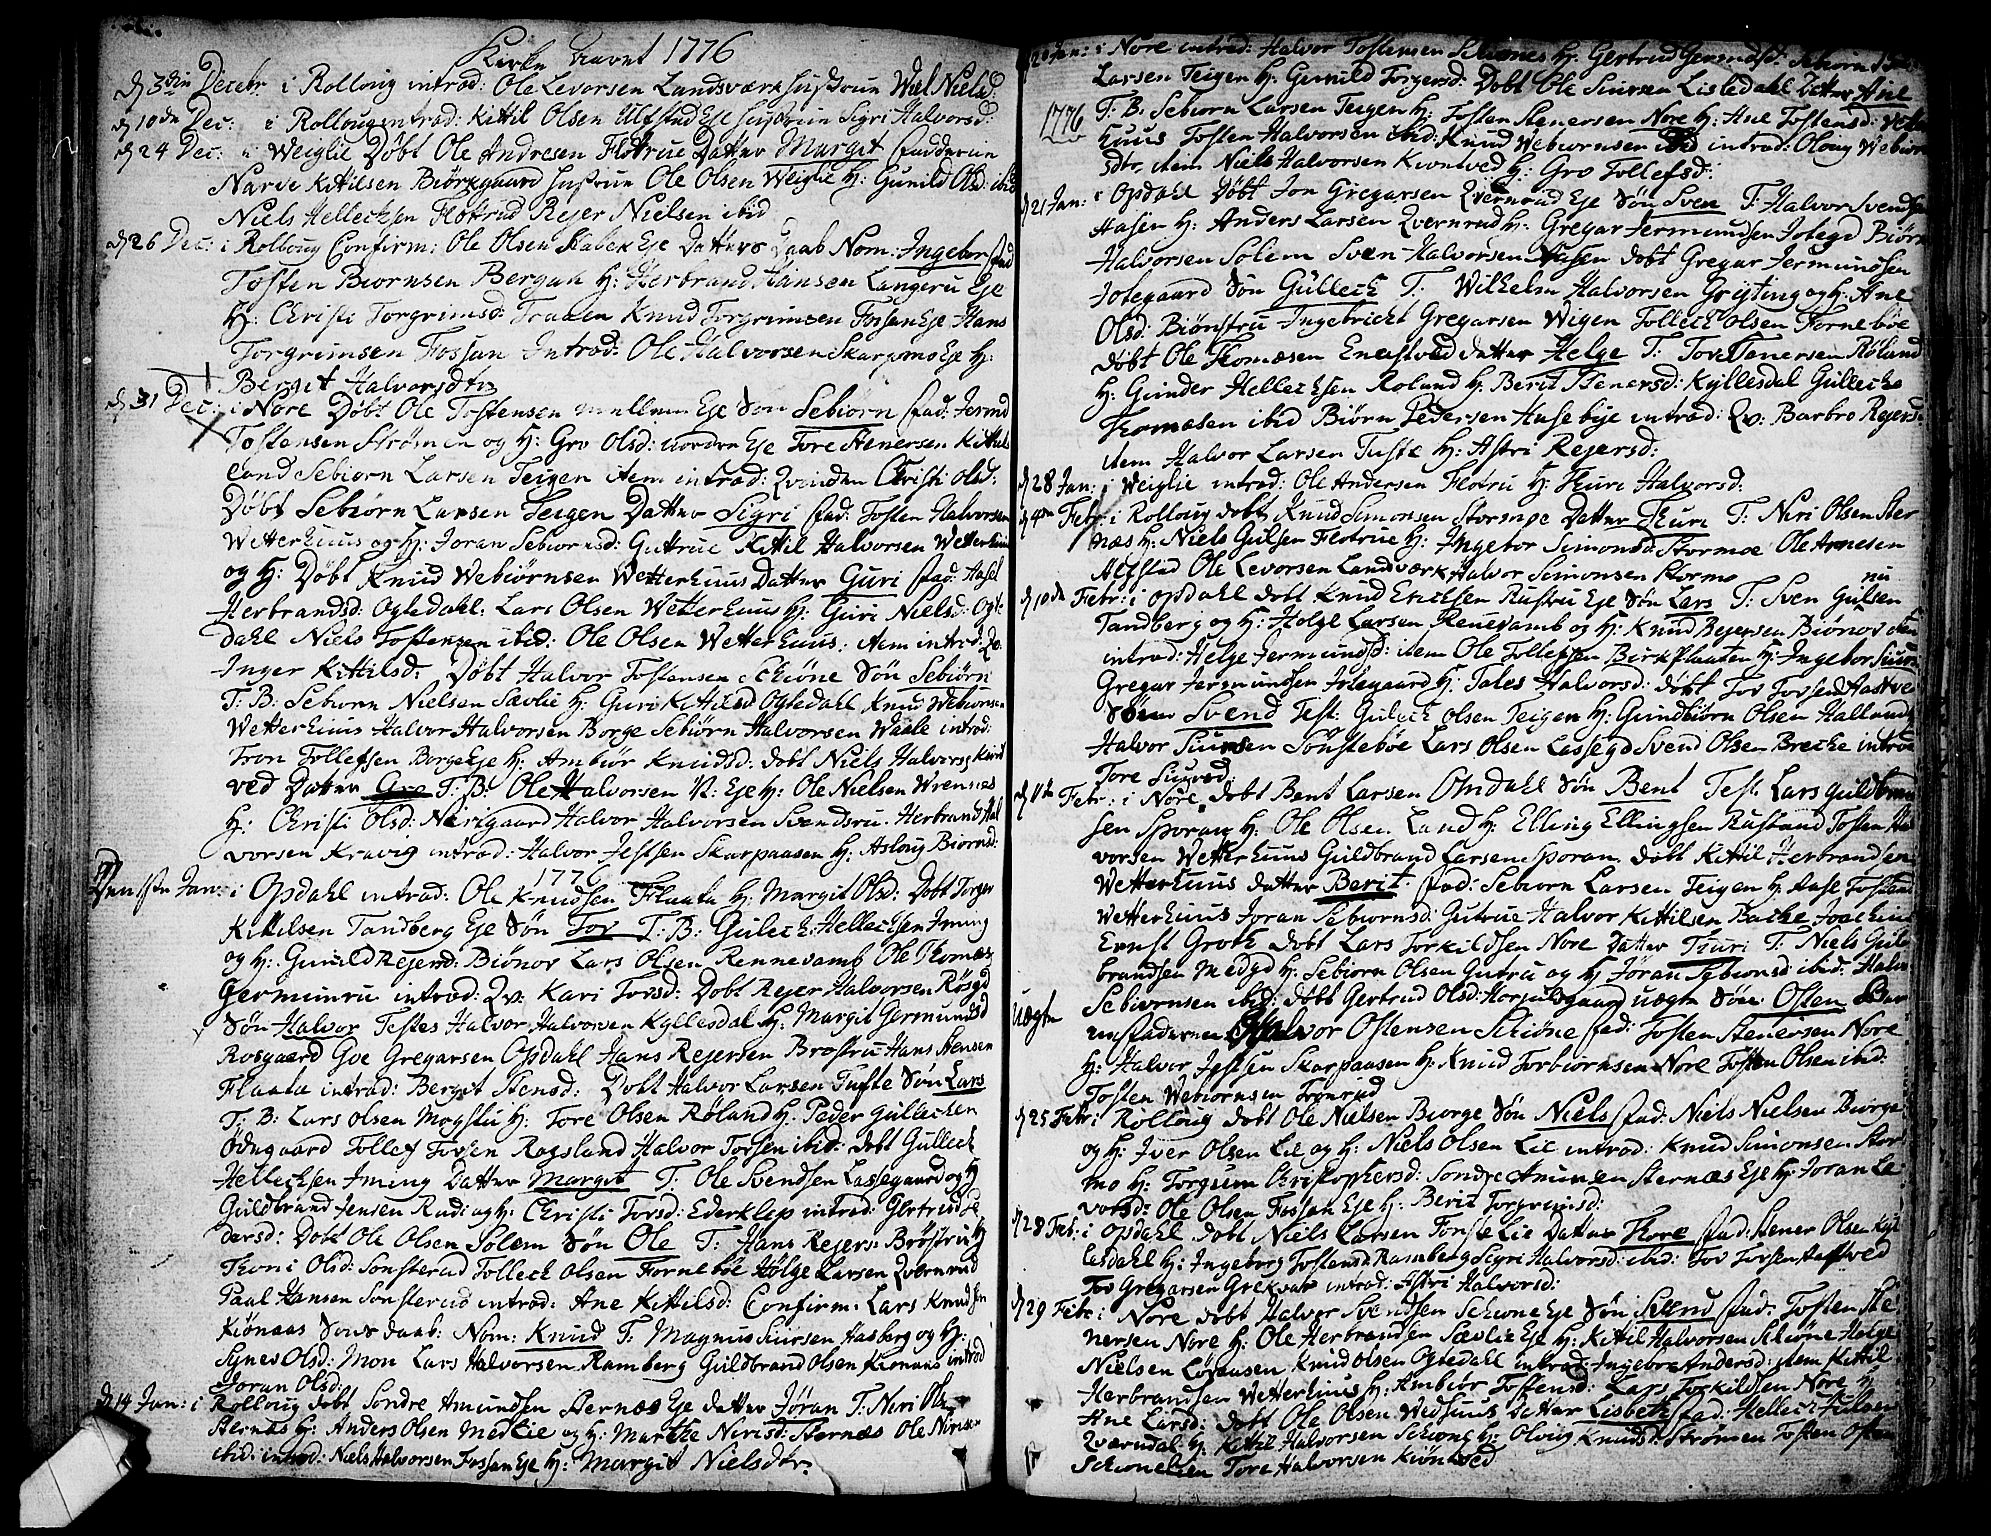 Kirke Aaret 1776
d 3die Decebr. i Rolloug introd: Ole Levorsen Landsværk Hustrue Niels
d 10de Dec: i Rolloug introd: Kittil Olsen Ulfstad Eje Hustrue Sigri Halvorsd:
d 24 Dec: i Weiglie Døbt Ole Andresen Flotrue Datter Margit fadderne
Narve Kittilsen Biørkgaard Hustrue Ole Olsen Weiglie H: Gunild Olsd: ibid
Niels Hellechsen Flotrud Rejer Nielsen ibid
d 26 Dec: i Rolloug Confirm: Ole Olsen Kabek Eje Datters Daab Nom: Ingebor fad
Tosten Biornsen Bergan H: Herbrand Hansen Langeru Eje
H: Christi Torgrimsd: Fraaen Knud Torgrimsen Fossan Eje Hans
Torgrimsen Fossan Introd: Ole Halvorsen Skarpmo Eje H:
Bergit Halvorsdtr
d 31 Dec: i Nore Døbt Ole Tostensen mellem Eje Søn Sebiørn fad: Jermd
Tostensen Strømen og H: Gro Olsd: Eje Tore Stenersen Kittil
Lund Sebiorn Larsen Teigen Item introd: Qvinden Christi Olsd:
Døbt Sebiørn Larsen Teigen Datter Sigri fad: Tosten Halvorsen
Wetterhuus og H: Joran Sebiornsd: Guttrue Kittil Halvorsen Wetterhuus
og H: Døbt Knud Webiørnsen Wetterhuus Datter Guri fad: Assel
Herbrandsd: Ogtedahl: Lars Olsen Wetterhuus H: Guri Nielsd: Ogte
dahl Niels Tostensen ibid: Ole Olsen Wetterhuus: Item introd: Qv:
Inger Kittilsd: Døbt Halvor Tostensen Schiøne Søn Sebiørn
T: B: Sebiorn Nielsen Sævlie H: Guri Kittilsd Ogtedahl Knud Webiornsen
Wetterhuus Halvor Halvorsen Borge Sebiørn Halvorsen Waale introd:
Tron Tollefsen Borge Eje H: Ambiør Knudsd: døbt Niels Halvorsen Kiønt
ved Datter Gro T: B: Ole Halvorsen Eje H: Ole Nielsen Wrennes
H: Christi Olsd: Nærigaard Halvor Halvorsen Svendsru Herbrand Hal
vorsen Kravig introd: Halvor Jestsen Skarpaasen H: Asloug Biornsd:
1776
Den 1ste Jan: i Opdahl introd: Ole Knudsen Flaata H: Margit Olsd: Døbt Torger
Kittilsen Tandberg Eje Søn Tor T: B: Gulech Hellechsen Iming
og H: Gunild Rejersd: Biønor Lars Olsen Rennevamb Ole Thomæs:
Germunru introd: Qv: Kari Torsd: Døbt Rejer Halvorsen Røsgd
Søn Halvor Testes Halvor Halvorsen Kyllesdal H: Margit Germundsd
Rosgaard Goe Gregarsen Opdahl Hans Rejersen Brøstru Hans Stensen
Flaata introd: Bergit Stensd: Døbt Halvor Larsen Tufte Søn Lars
T: B: Lars Olsen Mogstu H: Tore Olsen Røland H: Peder Gullechsen
Ødegaard Tollef Torsen Ragsland Halvor Torsen ibid: døbt Gullech
Hellechsen Iming Datter Margit T: Ole Svendsen Lassegaard og H
Guldbrand Jensen Rud: og H: Christi Torsd: Ederklep introd: Gertrud Pe
dersd: Døbt Ole Olsen Solem Søn Ole T: Hans Rejers: Brøstru H
Thoni Olsd: Sønsterud Tollech Olsen Fornebøe Hølge Larsen Qværnrud
Paal Hansen Sønsterud introd: Ane Kittilsd: Confirm: Lars Knudsen
Kiønaas Søns daab: Nom: Knud T: Magnus Siursen Aasberg og H:
Synev Olsd: Mon Lars Halvorsen Ramberg Guldbrand Olsen Kionaas introd
Joran Olsd:
d 14 Jan: i Rolloug døbt Sondre Amundsen Stærnæs Eje datter Jøran T: Neri Ols
Stærnæs H: Anders Olsen Medlie og H: Marthe Nirisd: Stærnæs Ole Nirisen
ibid: introd: Niels Halvorsen Fossan Eje H: Margit Nielsdtr.
d 20 Jan: i Nore introd: Halvor Tostensen Schiones H: Gertrud Germundsd:
Larsen Teigen H: Gunild Torgersd: Døbt Ole Siursen Lisledahl Datter Ane
1776
T. B. Sebiorn Larsen Teigen H: Tosten Stenersen Nore H: Ane Tostensd: Wetter
huus Tosten Halvorsen ibid: Knud Webiornsen ibid introd: Oloug Webiorn
sdtr, item Niels Halvorsen Kiøntved H: Gro Tollefsd:
d 21 Jan: i Opdahl Døbt Jon Gregarsen Qvernrud Eje Søn Sven T: Halvor Svendsen
Aasen H: Anders Larsen Qvernrud H: Gregar Jermundsen Jotegd Biørn
Halvorsen Solem Sven Halvorsen Aasen døbt Gregar Jermundsen
Jotegaard Søn Gullech T. Wilhelm Halvorsen Gryting og H: Ane
Olsd: Biørnstru Ingebricht Gregarsen Wigen Tollech Olsen Fornebøe
døbt Ole Thomæsen Enestved datter Helge T: Tore Stenersen Røland
H: Gunder Hellechsen Roland H: Berit Stenersd: Kyllesdal Gullech
Thomæsen ibid Biørn Pedersen Husebye introd: Qv: Barbro Rejersd:
item Halvor Larsen Tufte H: Astri Rejersd:
d 28 Jan: i Weiglie introd: Ole Andersen Flotru H: Thuri Halvorsd:
d 4de Febr: i Rolloug døbt Knud Simonsen Stormoe Datter Thuri T: Niri Olsen Stær
næs H: Niels Gulsen Flotrue H: Ingebor Simonsd: Stormoe Ole Arnesen
Alfstad Ole Levorsen Landværk Halvor Simonsen Stormo
d 10de Febr: i Opdahl døbt Knud Erichsen Rustru Eje Søn Lars T: Sven Gulsen
Tandberg og H: Holge Larsen Renevamb og H: Knud Rejersen Biønor
introd: Helge Jermundsd: item Ole Tollefsen Birkplaaten H: Ingebor Siurs:
Gregar Jermundsen Jotegaard H: Tales Halvorsd: døbt Tor Torsen Aastve
Søn Svend Test: Gulech Olsen Teigen H: Gundbiørn Olsen Halland
Halvor Siursen Sønstebøe Lars Olsen Lassegd Svend Olsen Breche introd
Tore Siuvsd:
d 11te Febr: i Nore døbt Bent Larsen Omdahl Søn Bent Test Lars Guldbrand
sen Sporan H: Ole Olsen Land H: Elling Ellingsen Rustand Tosten Hal
vorsen Wetterhuus Guldbrand Larsen Sporan døbt Kittil Herbrandsen
Wetterhuus datter Berit fad: Sebiorn Larsen Teigen H: Aase Tostensd:
Wetterhuus Joran Sebiornsd: Gutrue Halvor Kittilsen Bache Joachim
Ernst Groth døbt Lars Torkildsen Nore Datter Touri T: Niels Guld
brandsen Medgd H: Sebiorn Olsen Gutru og H Jøran Sebiornsd ibid: Halv
Sebiornsen ibid: døbt Gertrud Olsd: Horjulsgaard uægte Søn Osten Bar
uægte
nefaderen Halvor Ostensen Schiøne fad: Tosten Stenersen Nore
H: Halvor Jestsen Skarpaasen H: Knud Torbiornsen Nore Tosten Olsen ibid:
Tosten Webiornsen Tronrud
d 25 Febr: i Rolloug døbt Ole Nielsen Buorge Søn Niels fad: Niels Nielsen Buorge
og H: Iver Olsen Lie og H: Niels Olsen Lie introd: Knud Simonsen Stor
mo H: Torgun Christophersd: Sondre Amunsen Stærnæs Eje H Joran Le
vorsd: Ole Olsen Fossan Eje H: Berit Torgrimsd:
d 28 Feb: i Opdahl døbt Niels Larsen Fonse Lie Datter Thore fad: Stener Olsen Kyl
lesdahl H: Ingeborg Tostensd Ramberg Sigri Halvorsd: ibid: Tor Torsen Aastved
Tor Gregarsen Grekvar introd: Astri Halvorsd:
d 29 Febr: i Nore døbt Halvor Svendsen Schione Eje Søn Svend fad: Tosten Ste
nersen Nore H: Ole Herbrandsen Sævlie Eje H: Kittil Halvorsen Schiøne Helge
Nielsen Løvaasen Knud Olsen Ogtedahl introd: Ingebor Andersd: item Kittil
Herbrandsen Wetterhuus H: Ambiør Tostensd: Lars Torkildsen Nore H
Ane Larsd: døbt Ole Olsen Wedhuus Datter Lisbeth fad: Hellech Hellsen
Qværndal H: Kittil Halvorsen Schione H: Oloug Knudsd: Strømen Tosten Osten
Schionelien Tore Halvorsen Kiøntved